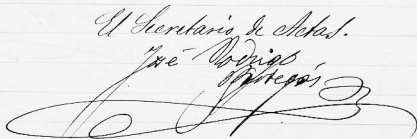 El Secretario de Actas.
José Rodrigo